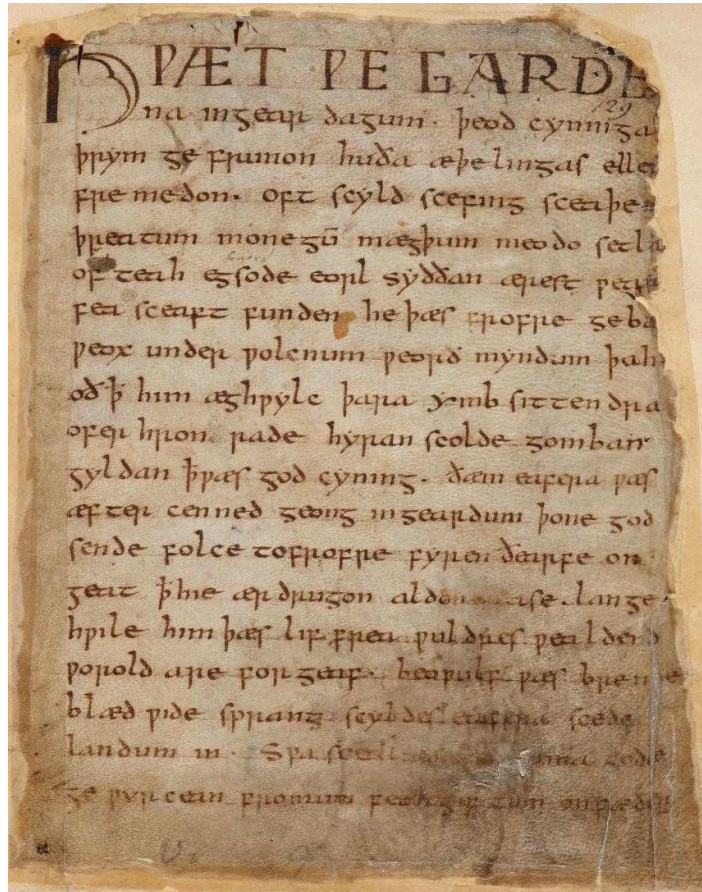 HǷÆT ǷE GARDE
na ingear dagum. þeod cyninga
þrym ge frunon huða æþelingas elle
fremedon. oft scyld scefing sceaþe
þreatum monegū mægþum meodo setla
of teah egsode eorl syððan ærest ƿear
fea sceaft funden he þæs frofre geba
ƿeox under ƿolcnum ƿeorð myndum þah
oð ꝥ him æghƿylc þara ymb sittendra
ofer hron rade hyran scolde gomban
gyldan ꝥ ƿæs god cyning. ðæm eafera ƿæs
æfter cenned geong ingeardum þone god
sende folce tofrofre fyren ðearfe on
geat ꝥ hie ær drugon aldor ase. lange
hƿile him þæs lif frea ƿuldres ƿealdend
ƿorold are forgeaf. beoƿulf ƿæs breme
blæd ƿide sprang scyldes eafera scede
landum in. Sƿa sceal guma gode
ge ƿyrcean fromum feoh giftum on fæder